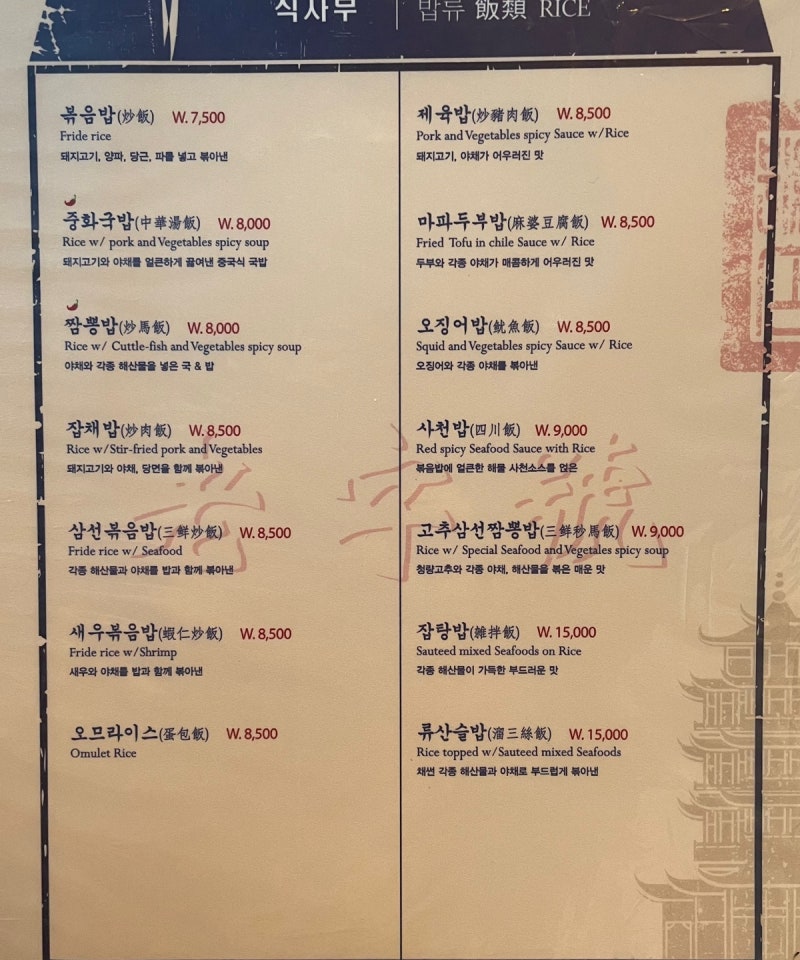 식사부 밥류 飯類 RICE
볶음밥(炒飯) W. 7,500
Fride rice
돼지고기, 양파, 당근, 파를 넣고 볶아낸
중화국밥(中華湯飯) W. 8,000
Rice w/ pork and Vegetables spicy soup
돼지고기와 야채를 얼큰하게 끓여낸 중국식 국밥
짬뽕밥(炒馬飯) W. 8,000
Rice w/ Cuttle-fish and Vegetables spicy soup
야채와 각종 해산물을 넣은 국 & 밥
잡채밥(炒肉飯) W. 8,500
Rice w/Stir-fried pork and Vegetables
돼지고기와 야채, 당면을 함께 볶아낸
삼선볶음밥(三鮮炒飯) W. 8,500
Fride rice w/ Seafood
각종 해산물과 야채를 밥과 함께 볶아낸
새우볶음밥(蝦仁炒飯) W. 8,500
Fride rice w/Shrimp
새우와 야채를 밥과 함께 볶아낸
오므라이스(蛋包飯) W. 8,500
Omulet Rice
제육밥(炒豬肉飯) W. 8,500
Pork and Vegetables spicy Sauce w/Rice
돼지고기, 야채가 어우러진 맛
마파두부밥(麻婆豆腐飯) W. 8,500
Fried Tofu in chile Sauce w/ Rice
두부와 각종 야채가 매콤하게 어우러진 맛
오징어밥(魷魚飯) W. 8,500
Squid and Vegetables spicy Sauce w/ Rice
오징어와 각종 야채를 볶아낸
사천밥(四川飯) W. 9,000
Red spicy Seafood Sauce with Rice
볶음밥에 얼큰한 해물 사천소스를 얹은
고추삼선짬뽕밥(三鮮秒馬飯) W. 9,000
Rice w/ Special Seafood and Vegetales spicy soup
청량고추와 각종 야채, 해산물을 볶은 매운 맛
잡탕밥(雜拌飯) W. 15,000
Sauteed mixed Seafoods on Rice
각종 해산물이 가득한 부드러운 맛
류산슬밥(溜三絲飯) W. 15,000
Rice topped w/Sauteed mixed Seafoods
채썬 각종 해산물과 야채로 부드럽게 볶아낸